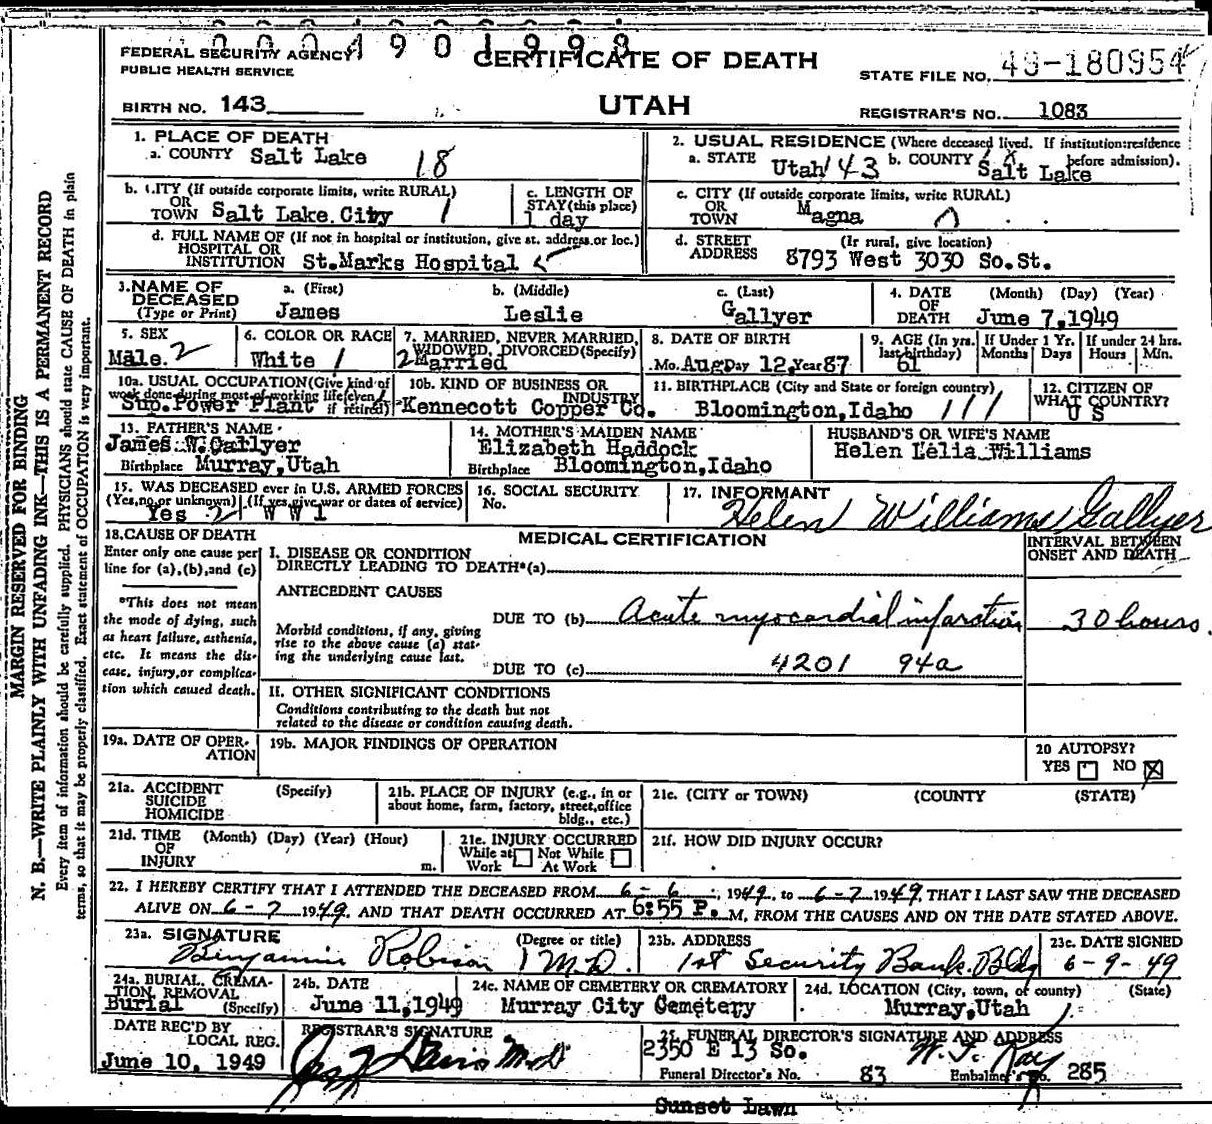 0004901998
FEDERAL SECURITY AGENCY
PUBLIC HEALTH SERVICE
CERTIFICATE OF DEATH
STATE FILE NO. 49-180954
BIRTH NO. 143
UTAH
REGISTRAR'S NO. 1083
1. PLACE OF DEATH
a. COUNTY Salt Lake 18
2. USUAL RESIDENCE (Where deceased lived. If institution:residence before admission).
a. STATE Utah 43 b. COUNTY Salt Lake
b. CITY (If outside corporate limits, write RURAL) OR TOWN Salt Lake City 1
c. LENGTH OF STAY (this place) 1 day
c. CITY (If outside corporate limits, write RURAL) OR TOWN Magna
d. FULL NAME OF (If not in hospital or institution, give st. address or loc.) HOSPITAL OR INSTITUTION St.Marks Hospital
d. STREET ADDRESS (If rural, give location) 8793 West 3030 So.St.
3. NAME OF DECEASED (Type or Print)
a. (First) James
b. (Middle) Leslie
c. (Last) Gallyer
4. DATE OF DEATH (Month) (Day) (Year) June 7,1949
5. SEX Male 2
6. COLOR OR RACE White 1
7. MARRIED, NEVER MARRIED, WIDOWED, DIVORCED(Specify) 2 Married
8. DATE OF BIRTH Mo. Aug Day 12, Year 87
9. AGE (In yrs. last birthday) 61
If Under 1 Yr. Months Days
If under 24 hrs. Hours Min.
10a. USUAL OCCUPATION(Give kind of work done during most of working life(even if retired) Sup.Power Plant
10b. KIND OF BUSINESS OR INDUSTRY Kennecott Copper Co.
11. BIRTHPLACE (City and State or foreign country) Bloomington,Idaho 111
12. CITIZEN OF WHAT COUNTRY? U S
13. FATHER'S NAME James W.Gallyer
Birthplace Murray,Utah
14. MOTHER'S MAIDEN NAME Elizabeth Haddock
Birthplace Bloomington,Idaho
HUSBAND'S OR WIFE'S NAME Helen Lelia Williams
15. WAS DECEASED ever in U.S. ARMED FORCES (Yes,no,or unknown) (If yes,give war or dates of service) Yes 2 W W 1
16. SOCIAL SECURITY No.
17. INFORMANT Helen Williams Gallyer
18.CAUSE OF DEATH
Enter only one cause per line for (a),(b),and (c)
*This does not mean the mode of dying, such as heart failure, asthenia, etc. It means the disease, injury,or complication which caused death.
MEDICAL CERTIFICATION
INTERVAL BETWEEN ONSET AND DEATH
I. DISEASE OR CONDITION DIRECTLY LEADING TO DEATH*(a)
ANTECEDENT CAUSES
DUE TO (b) Acute myocardial infarction 30 hours.
Morbid conditions, if any, giving rise to the above cause (a) stating the underlying cause last.
DUE TO (c) 4201 94a
II. OTHER SIGNIFICANT CONDITIONS
Conditions contributing to the death but not related to the disease or condition causing death.
19a. DATE OF OPERATION
19b. MAJOR FINDINGS OF OPERATION
20 AUTOPSY? YES NO X
21a. ACCIDENT SUICIDE HOMICIDE (Specify)
21b. PLACE OF INJURY (e.g., in or about home, farm, factory, street,office bldg., etc.)
21c. (CITY or TOWN) (COUNTY) (STATE)
21d. TIME OF INJURY (Month) (Day) (Year) (Hour) m.
21e. INJURY OCCURRED While at Work Not While At Work
21f. HOW DID INJURY OCCUR?
22. I HEREBY CERTIFY THAT I ATTENDED THE DECEASED FROM 6-6, 1949, to 6-7 1949, THAT I LAST SAW THE DECEASED
ALIVE ON 6-7 1949, AND THAT DEATH OCCURRED AT 6:55 P. M, FROM THE CAUSES AND ON THE DATE STATED ABOVE.
23a. SIGNATURE (Degree or title) Benjamin Robison M.D.
23b. ADDRESS 1st Security Bank.Bldg
23c. DATE SIGNED 6-9-49
24a. BURIAL, CREMATION, REMOVAL (Specify) Burial
24b. DATE June 11,1949
24c. NAME OF CEMETERY OR CREMATORY Murray City Cemetery
24d. LOCATION (City, town, or county) (State) Murray,Utah
DATE REC'D BY LOCAL REG. June 10, 1949
REGISTRAR'S SIGNATURE
25. FUNERAL DIRECTOR'S SIGNATURE AND ADDRESS
2350 E 13 So.
Funeral Director's No. 83 Embalmer's No. 285
Sunset Lawn
MARGIN RESERVED FOR BINDING
N. B.—WRITE PLAINLY WITH UNFADING INK—THIS IS A PERMANENT RECORD
Every item of information should be carefully supplied. PHYSICIANS should state CAUSE OF DEATH in plain
terms, so that it may be properly classified. Exact statement of OCCUPATION is very important.